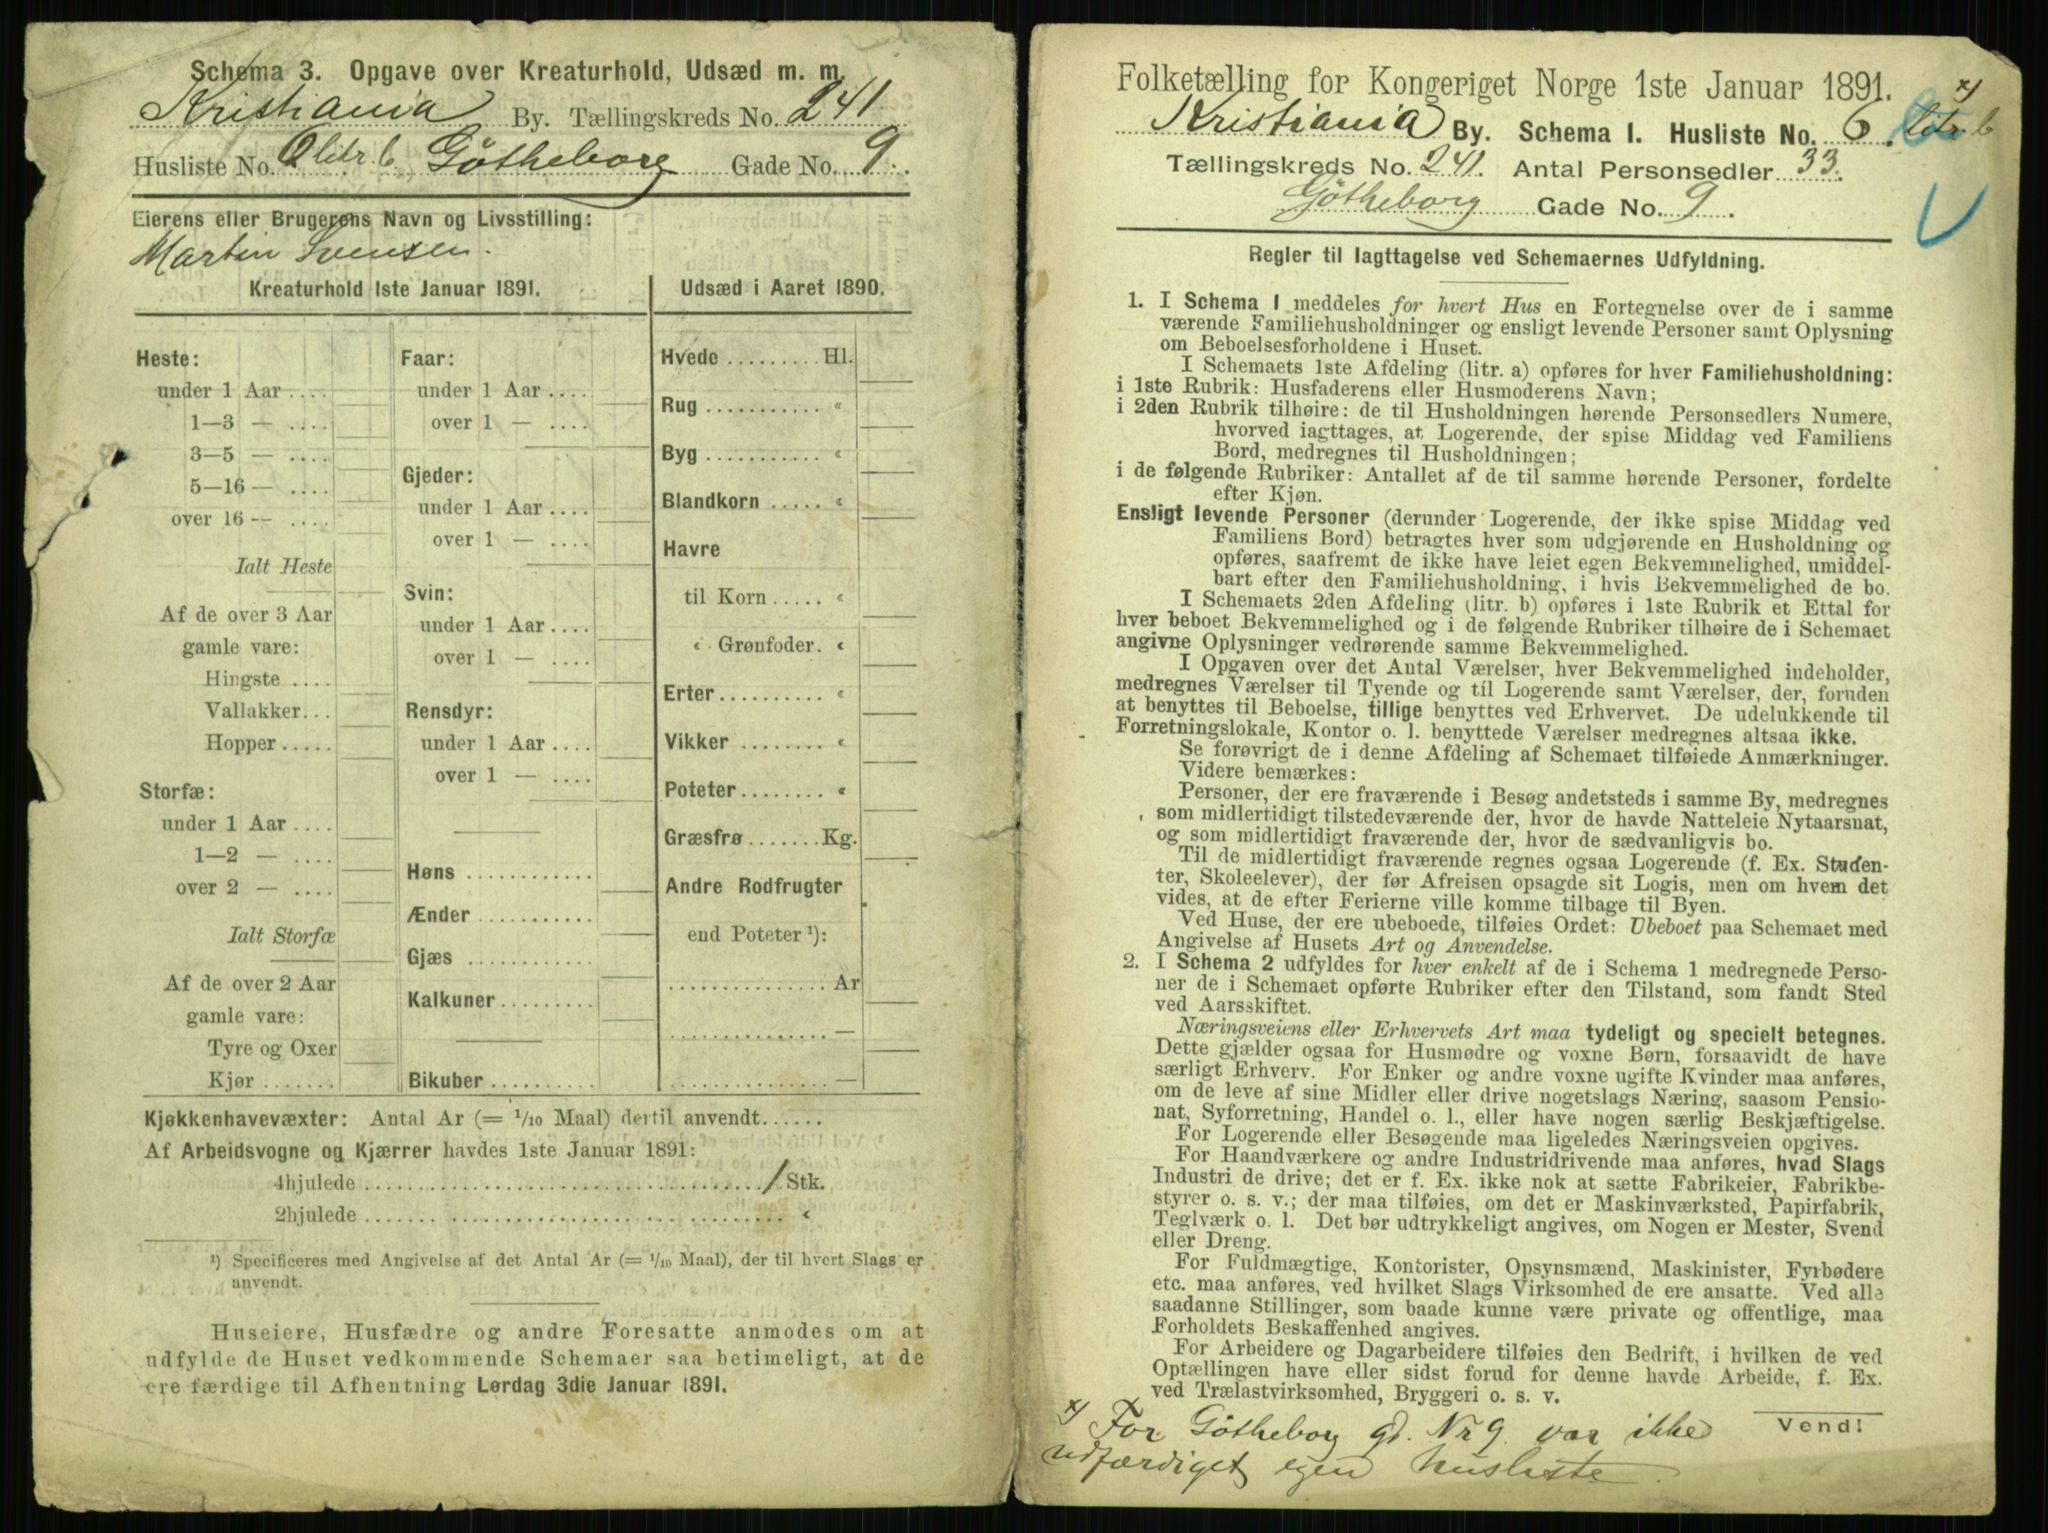 Schema 3. Opgave over Kreaturhold, Udsæd m. m.
Kristiania By. Tællingskreds No. 241.
Husliste No. 6 litr. b Götheborg Gade No. 9.
Eierens eller Brugerens Navn og Livsstilling:
Martin Svensen.
Kreaturhold 1ste Januar 1891.
Heste:
under 1 Aar ....
1—3 — ....
3—5 — ....
5—16 — ....
over 16 -- ....
Ialt Heste
Af de over 3 Aar
gamle vare:
Hingste ....
Vallakker...
Hopper .....
Storfæ:
under 1 Aar ....
1—2 — ....
over 2 — ....
Ialt Storfæ
Af de over 2 Aar
gamle vare:
Tyre og Oxer
Kjør .......
Faar:
under 1 Aar ....
over 1 — ....
Gjeder:
under 1 Aar ....
over 1 — ....
Svin:
under 1 Aar ....
over 1 — ....
Rensdyr:
under 1 Aar ....
over 1 — ....
Høns ............
Ænder ...........
Gjæs ............
Kalkuner .........
Bikuber ..........
Udsæd i Aaret 1890.
Hvede ......... Hl.
Rug ........... «
Byg ........... «
Blandkorn ..... «
Havre
til Korn ..... «
« Grønfoder. «
Erter .......... «
Vikker ......... «
Poteter ........ «
Græsfrø ....... Kg.
Andre Rodfrugter
end Poteter ¹):
............... Ar
............... —
............... —
Kjøkkenhavevæxter: Antal Ar (= 1/10 Maal) dertil anvendt......
Af Arbeidsvogne og Kjærrer havdes 1ste Januar 1891:
4hjulede ........................................ 1 Stk.
2hjulede ........................................ «
¹) Specificeres med Angivelse af det Antal Ar (= 1/10 Maal), der til hvert Slags er
anvendt.
Huseiere, Husfædre og andre Foresatte anmodes om at
udfylde de Huset vedkommende Schemaer saa betimeligt, at de
ere færdige til Afhentning Lørdag 3die Januar 1891.
Folketælling for Kongeriget Norge 1ste Januar 1891.
Kristiania By. Schema I. Husliste No. 6. litr b x)
Tællingskreds No. 241. Antal Personsedler 33.
Götheborg Gade No. 9.
Regler til Iagttagelse ved Schemaernes Udfyldning.
1. I Schema 1 meddeles for hvert Hus en Fortegnelse over de i samme
værende Familiehusholdninger og ensligt levende Personer samt Oplysning
om Beboelsesforholdene i Huset.
I Schemaets 1ste Afdeling (litr. a) opføres for hver Familiehusholdning:
i 1ste Rubrik: Husfaderens eller Husmoderens Navn;
i 2den Rubrik tilhøire: de til Husholdningen hørende Personsedlers Numere,
hvorved iagttages, at Logerende, der spise Middag ved Familiens
Bord, medregnes til Husholdningen;
i de følgende Rubriker: Antallet af de til samme hørende Personer, fordelte
efter Kjøn.
Ensligt levende Personer (derunder Logerende, der ikke spise Middag ved
Familiens Bord) betragtes hver som udgjørende en Husholdning og
opføres, saafremt de ikke have leiet egen Bekvemmelighed, umiddel-
bart efter den Familiehusholdning, i hvis Bekvemmelighed de bo.
I Schemaets 2den Afdeling (litr. b) opføres i 1ste Rubrik et Ettal for
hver beboet Bekvemmelighed og i de følgende Rubriker tilhøire de i Schemaet
angivne Oplysninger vedrørende samme Bekvemmelighed.
I Opgaven over det Antal Værelser, hver Bekvemmelighed indeholder,
medregnes Værelser til Tyende og til Logerende samt Værelser, der, foruden
at benyttes til Beboelse, tillige benyttes ved Erhvervet. De udelukkende til
Forretningslokale, Kontor o. l. benyttede Værelser medregnes altsaa ikke.
Se forøvrigt de i denne Afdeling af Schemaet tilføiede Anmærkninger.
Videre bemærkes:
Personer, der ere fraværende i Besøg andetsteds i samme By, medregnes
som midlertidigt tilstedeværende der, hvor de havde Natteleie Nytaarsnat,
og som midlertidigt fraværende der, hvor de sædvanligvis bo.
Til de midlertidigt fraværende regnes ogsaa Logerende (f. Ex. Studen-
ter, Skoleelever), der før Afreisen opsagde sit Logis, men om hvem det
vides, at de efter Ferierne ville komme tilbage til Byen.
Ved Huse, der ere ubeboede, tilføies Ordet: Ubeboet paa Schemaet med
Angivelse af Husets Art og Anvendelse.
2. I Schema 2 udfyldes for hver enkelt af de i Schema 1 medregnede Perso-
ner de i Schemaet opførte Rubriker efter den Tilstand, som fandt Sted
ved Aarsskiftet.
Næringsveiens eller Erhvervets Art maa tydeligt og specielt betegnes.
Dette gjælder ogsaa for Husmødre og voxne Børn, forsaavidt de have
særligt Erhverv. For Enker og andre voxne ugifte Kvinder maa anføres,
om de leve af sine Midler eller drive nogetslags Næring, saasom Pensio-
nat, Syforretning, Handel o. l., eller have nogen særlig Beskjæftigelse.
For Logerende eller Besøgende maa ligeledes Næringsveien opgives.
For Haandværkere og andre Industridrivende maa anføres, hvad Slags
Industri de drive; det er f. Ex. ikke nok at sætte Fabrikeier, Fabrikbe-
styrer o. s. v.; der maa tilføies, om det er Maskinværksted, Papirfabrik,
Teglværk o. l. Det bør udtrykkeligt angives, om Nogen er Mester, Svend
eller Dreng.
For Fuldmægtige, Kontorister, Opsynsmænd, Maskinister, Fyrbødere
etc. maa anføres, ved hvilket Slags Virksomhed de ere ansatte. Ved alle
saadanne Stillinger, som baade kunne være private og offentlige, maa
Forholdets Beskaffenhed angives.
For Arbeidere og Dagarbeidere tilføies den Bedrift, i hvilken de ved
Optællingen have eller sidst forud for denne havde Arbeide, f. Ex.
ved Trælastvirksomhed, Bryggeri o. s. v.
Vend!
x) For Götheborg gd. Nr 9 var ikke
udfærdiget egen Husliste.